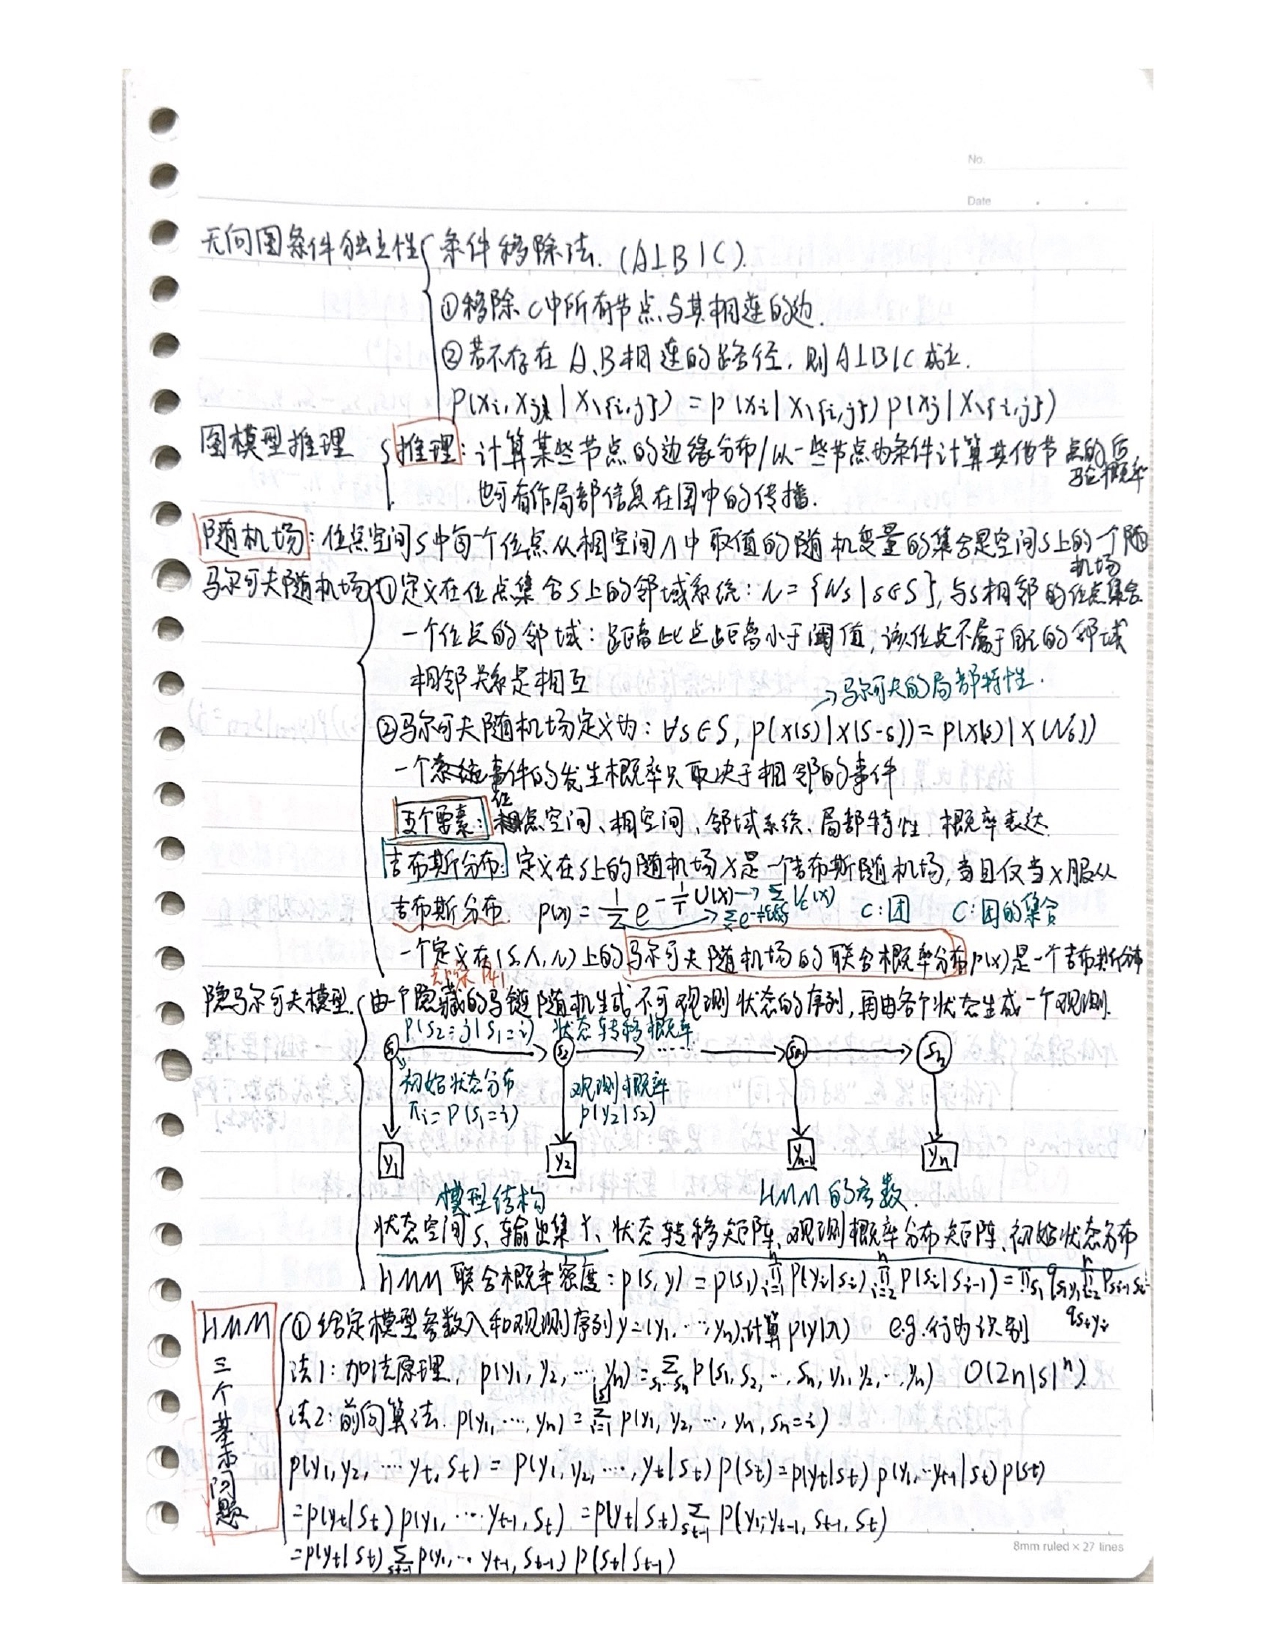 No.
Date
无向图条件独立性 条件移除法. (A⊥B|C).
①移除C中所有节点与其相连的边.
②若不存在A、B相连的路径, 则A⊥B|C成立.
P(xi, xj | x\{i,j}) = P(xi | x\{i,j}) P(xj | x\{i,j})
图模型推理 推理: 计算某些节点的边缘分布/以一些节点为条件计算其他节点的后验概率
也可看作局部信息在图中的传播.
随机场: 位点空间S中每个位点从相空间Λ中取值的随机变量的集合是空间S上的一个随机场
马尔可夫随机场 ①定义在位点集合S上的邻域系统: N = {Ns | s∈S}, 与s相邻的位点集合
一个位点的邻域: 距离此点距离小于阈值, 该位点不属于自己的邻域
相邻关系是相互
→马尔可夫的局部特性.
②马尔可夫随机场定义为: ∀s∈S, P(x(s)|x(S-s)) = P(x(s)|x(Ns))
一个系统事件的发生概率只取决于相邻的事件
五个要素: 位点空间、相空间、邻域系统、局部特性 概率表达.
吉布斯分布: 定义在S上的随机场X是一个吉布斯随机场, 当且仅当X服从
吉布斯分布. p(x) = 1/Z e^{-1/T U(x)} → Σ Vc(x) c: 团 C: 团的集合
一个定义在(S, Λ, N)上的马尔可夫随机场的联合概率分布p(x)是一个吉布斯分布
隐马尔可夫模型 由一个隐藏的马链随机生成不可观测状态的序列, 再由各个状态生成一个观测.
P(S2=j|S1=i) 状态转移概率
S1 S2 ...... Sn-1 Sn
初始状态分布 观测概率
πi = P(S1=i) P(y2|S2)
y1 y2 yn-1 yn
模型结构 HMM的参数.
状态空间S、输出集Y、状态转移矩阵、观测概率分布矩阵、初始状态分布
HMM 联合概率密度: p(s, y) = p(s1) ∏_{i=1}^{n} P(yi|si) ∏_{i=2}^{n} P(si|si-1) = πs1 qs1y1 ∏_{i=2}^{n} Psi-1si qsiyi
HMM三个基本问题 ①给定模型参数λ和观测序列y=(y1, ..., yn), 计算p(y|λ) e.g. 行为识别
法1: 加法原理, p(y1, y2, ..., yn) = Σ_{s1...sn} p(s1, s2, .., sn, y1, y2, .., yn) O(2n|s|^n)
法2: 前向算法. p(y1, ..., yn) = Σ_{i=1}^{|S|} p(y1, y2, ..., yn, sn=i)
p(y1, y2, ... yt, st) = p(y1, y2, ..., yt|st) p(st) = p(yt|st) p(y1, ..yt-1|st) p(st)
= p(yt|st) p(y1, ... yt-1, st) = p(yt|st) Σ_{st-1} p(y1, yt-1, st-1, st)
= p(yt|st) Σ_{st-1} p(y1, ... yt-1, st-1) p(st|st-1)
8mm ruled × 27 lines